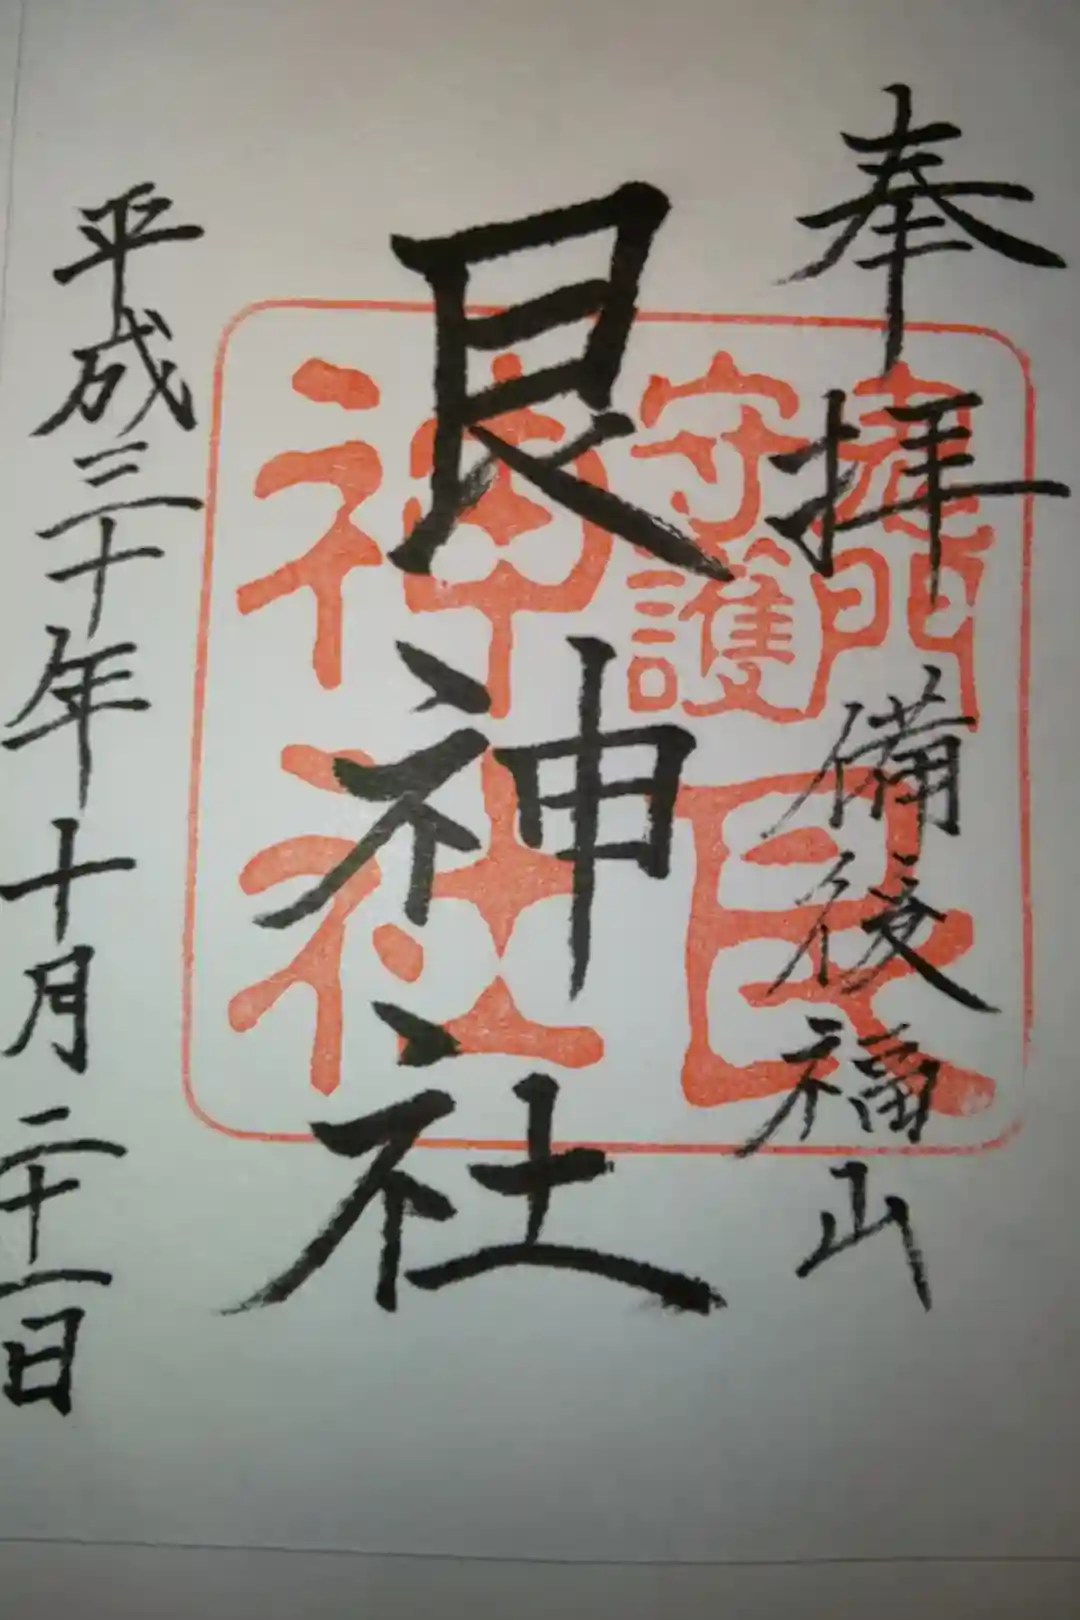 奉拝 備後福山
艮神社
平成三十年十月二十一日
門
守護
艮
神社